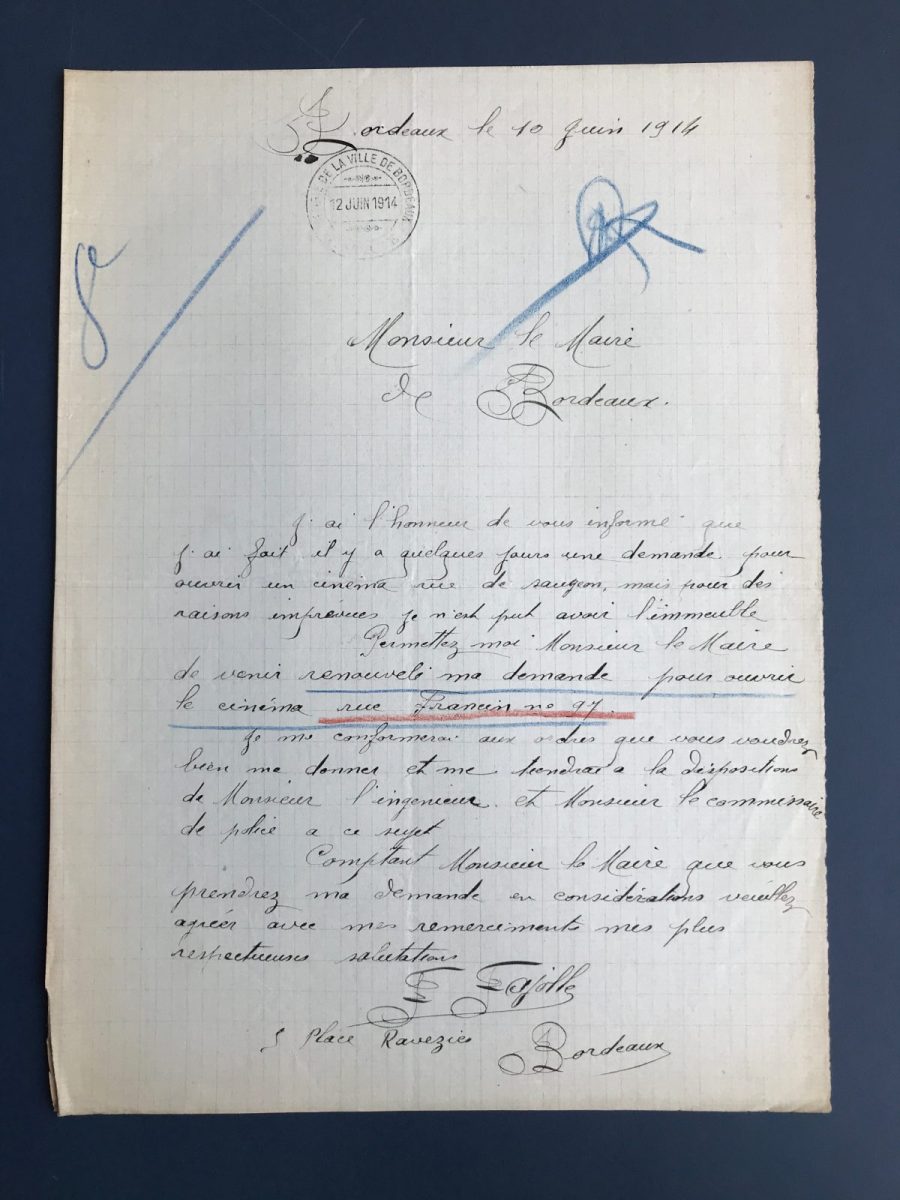 Bordeaux le 10 Juin 1914
DE LA VILLE DE BORDEAUX
12 JUIN 1914
Monsieur le Maire
de Bordeaux.
J'ai l'honneur de vous informé que
j'ai fait il y a quelques jours une demande pour
ouvrir un cinéma rue de saugeon, mais pour des
raisons imprévues je n'est put avoir l'immeuble
Permettez moi Monsieur le Maire
de venir renouvelé ma demande pour ouvrir
le cinéma rue Francin no 97.
Je me conformerai aux ordres que vous voudrez
bien me donner et me tiendrai a la dispositions
de Monsieur l'ingenieur et Monsieur le commissaire
de police a ce sujet
Comptant Monsieur le Maire que vous
prendrez ma demande en considérations veuillez
agréer avec mes remerciments mes plus
respectueuses salutations
F Fajolle
5 Place Ravezies
Bordeaux